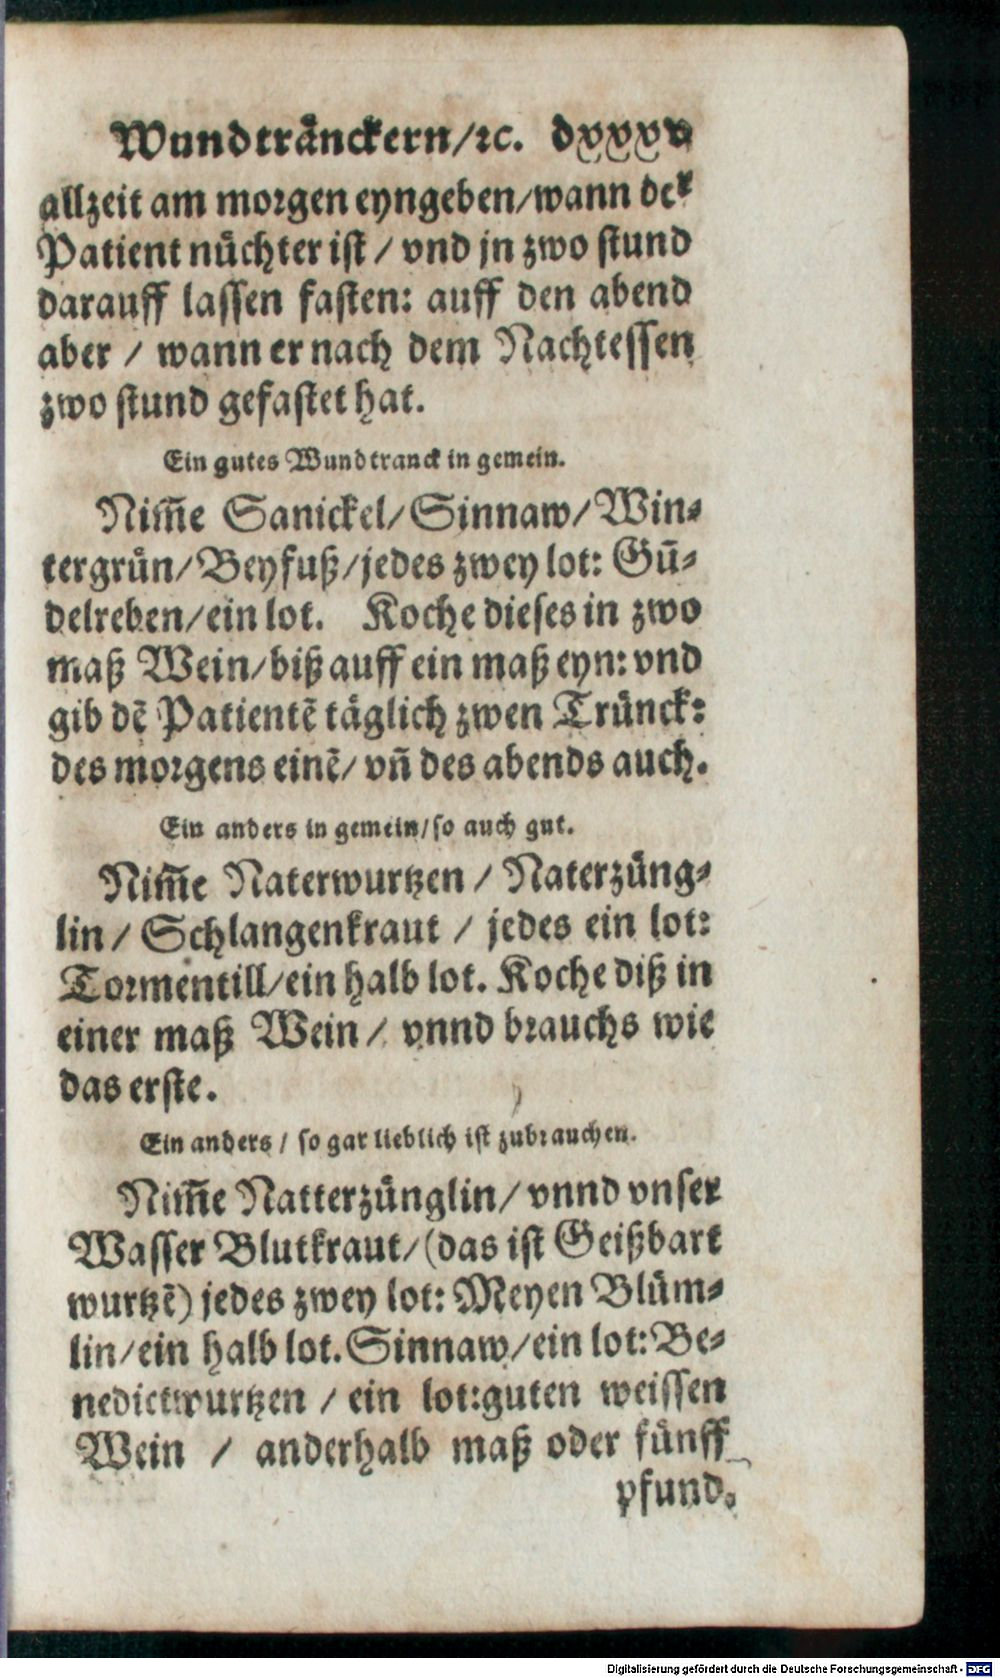 Wundtränckern/ꝛc. dxxxv
allzeit am morgen eyngeben/wann der
Patient nüchter ist / vnd jn zwo stund
darauff lassen fasten: auff den abend
aber / wann er nach dem Nachtessen
zwo stund gefastet hat.
Ein gutes Wundtranck in gemein.
Nim̃e Sanickel/Sinnaw/Win-
tergrün/Beyfuß/jedes zwey lot: Gũ-
delreben/ein lot. Koche dieses in zwo
maß Wein/biß auff ein maß eyn: vnd
gib dẽ Patientẽ täglich zwen Trünck:
des morgens einẽ/ vñ des abends auch.
Ein anders in gemein/so auch gut.
Nim̃e Naterwurtzen / Naterzüng-
lin / Schlangenkraut / jedes ein lot:
Tormentill/ein halb lot. Koche diß in
einer maß Wein / vnnd brauchs wie
das erste.
Ein anders / so gar lieblich ist zubrauchen.
Nim̃e Natterzünglin/ vnnd vnser
Wasser Blutkraut/(das ist Geißbart
wurtzẽ) jedes zwey lot: Meyen Blüm-
lin/ein halb lot. Sinnaw/ein lot: Be-
nedictwurtzen / ein lot: guten weissen
Wein / anderhalb maß oder fünff
pfund.
Digitalisierung gefördert durch die Deutsche Forschungsgemeinschaft - DFG